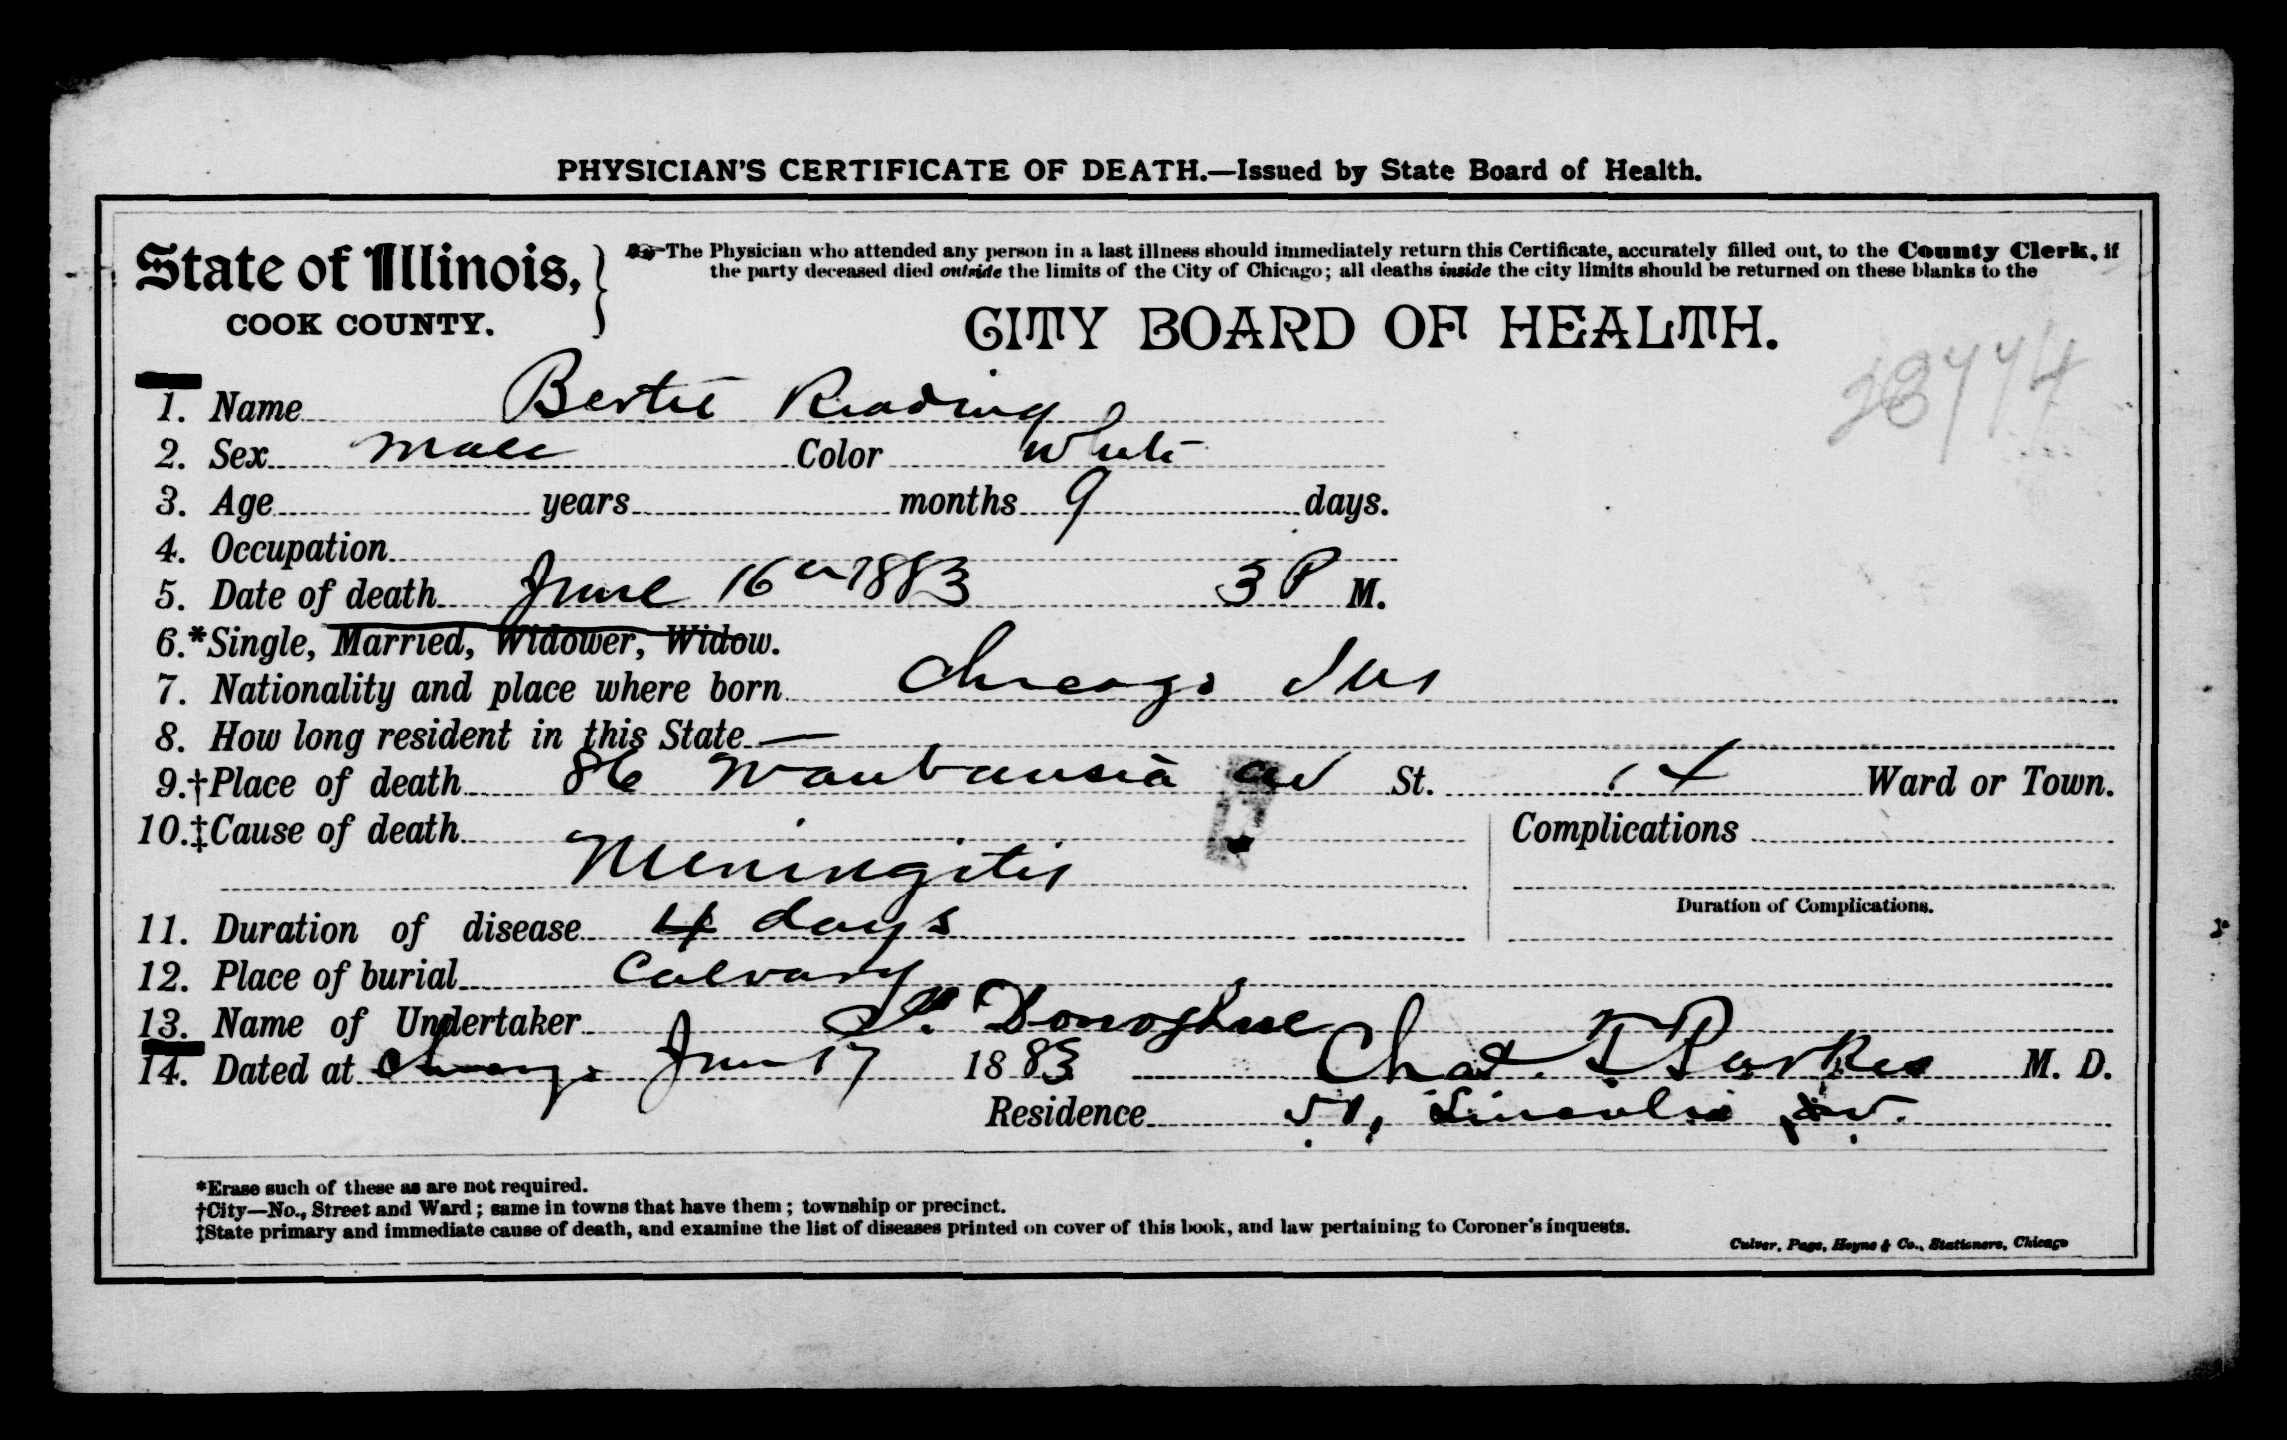 PHYSICIAN'S CERTIFICATE OF DEATH.—Issued by State Board of Health.
State of Illinois,
COOK COUNTY.
The Physician who attended any person in a last illness should immediately return this Certificate, accurately filled out, to the County Clerk, if
the party deceased died outside the limits of the City of Chicago; all deaths inside the city limits should be returned on these blanks to the
CITY BOARD OF HEALTH.
1. Name Bertie Reading
2. Sex Male Color White
3. Age years months 9 days.
4. Occupation
5. Date of death June 16 1883 3 P M.
6.*Single, Married, Widower, Widow.
7. Nationality and place where born Chicago Ills
8. How long resident in this State —
9.†Place of death 86 Waubansia av St. 14 Ward or Town.
10.‡Cause of death Complications
Meningitis
Duration of Complications.
11. Duration of disease 4 days
12. Place of burial Calvary
13. Name of Undertaker Donoghue
14. Dated at Chicago June 17 1883 Chas. T Parkes M. D.
Residence 51, Lincoln av.
*Erase such of these as are not required.
†City—No., Street and Ward; same in towns that have them; township or precinct.
‡State primary and immediate cause of death, and examine the list of diseases printed on cover of this book, and law pertaining to Coroner's inquests.
Culver, Page, Hoyne & Co., Stationers, Chicago